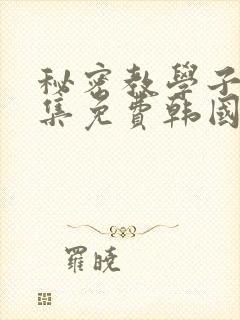 秘密教學子
集免費韩國
羅曉